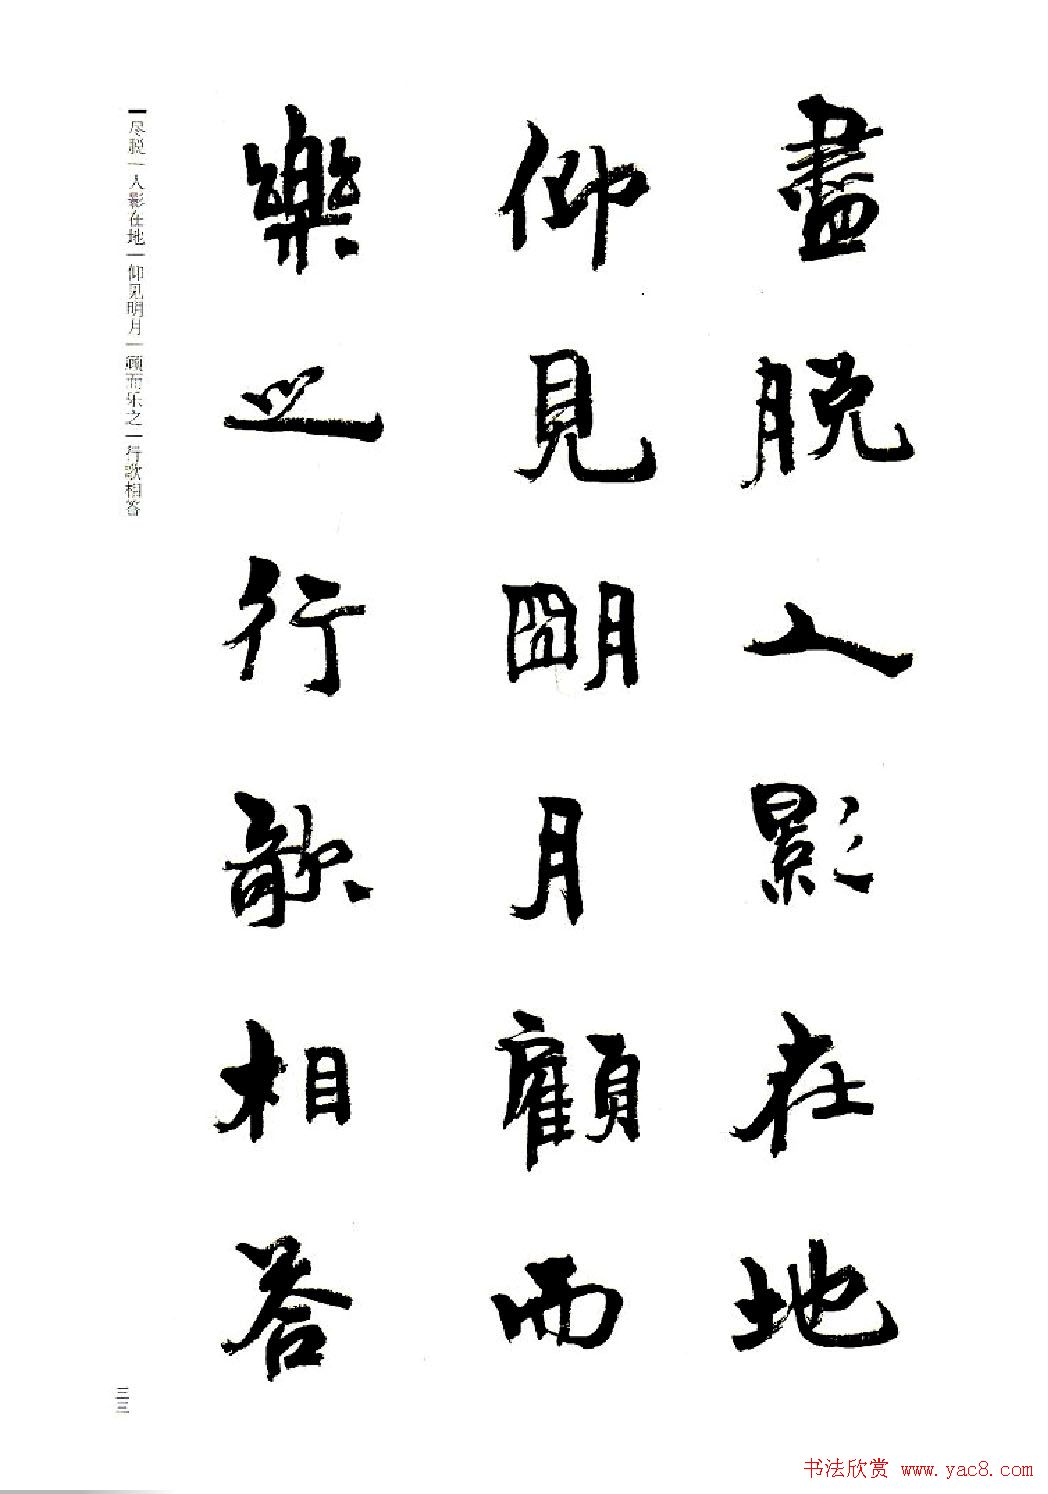 盡脫人影在地
仰見朙月顧而
樂之行歌相答
尽脱｜人影在地｜仰见明月｜顾而乐之｜行歌相答
三三
书法欣赏 www.yac8.com